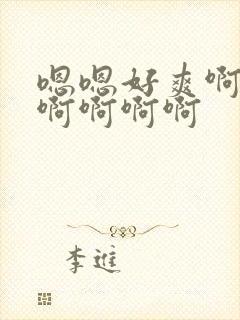 嗯嗯好爽啊
啊啊啊啊
李進